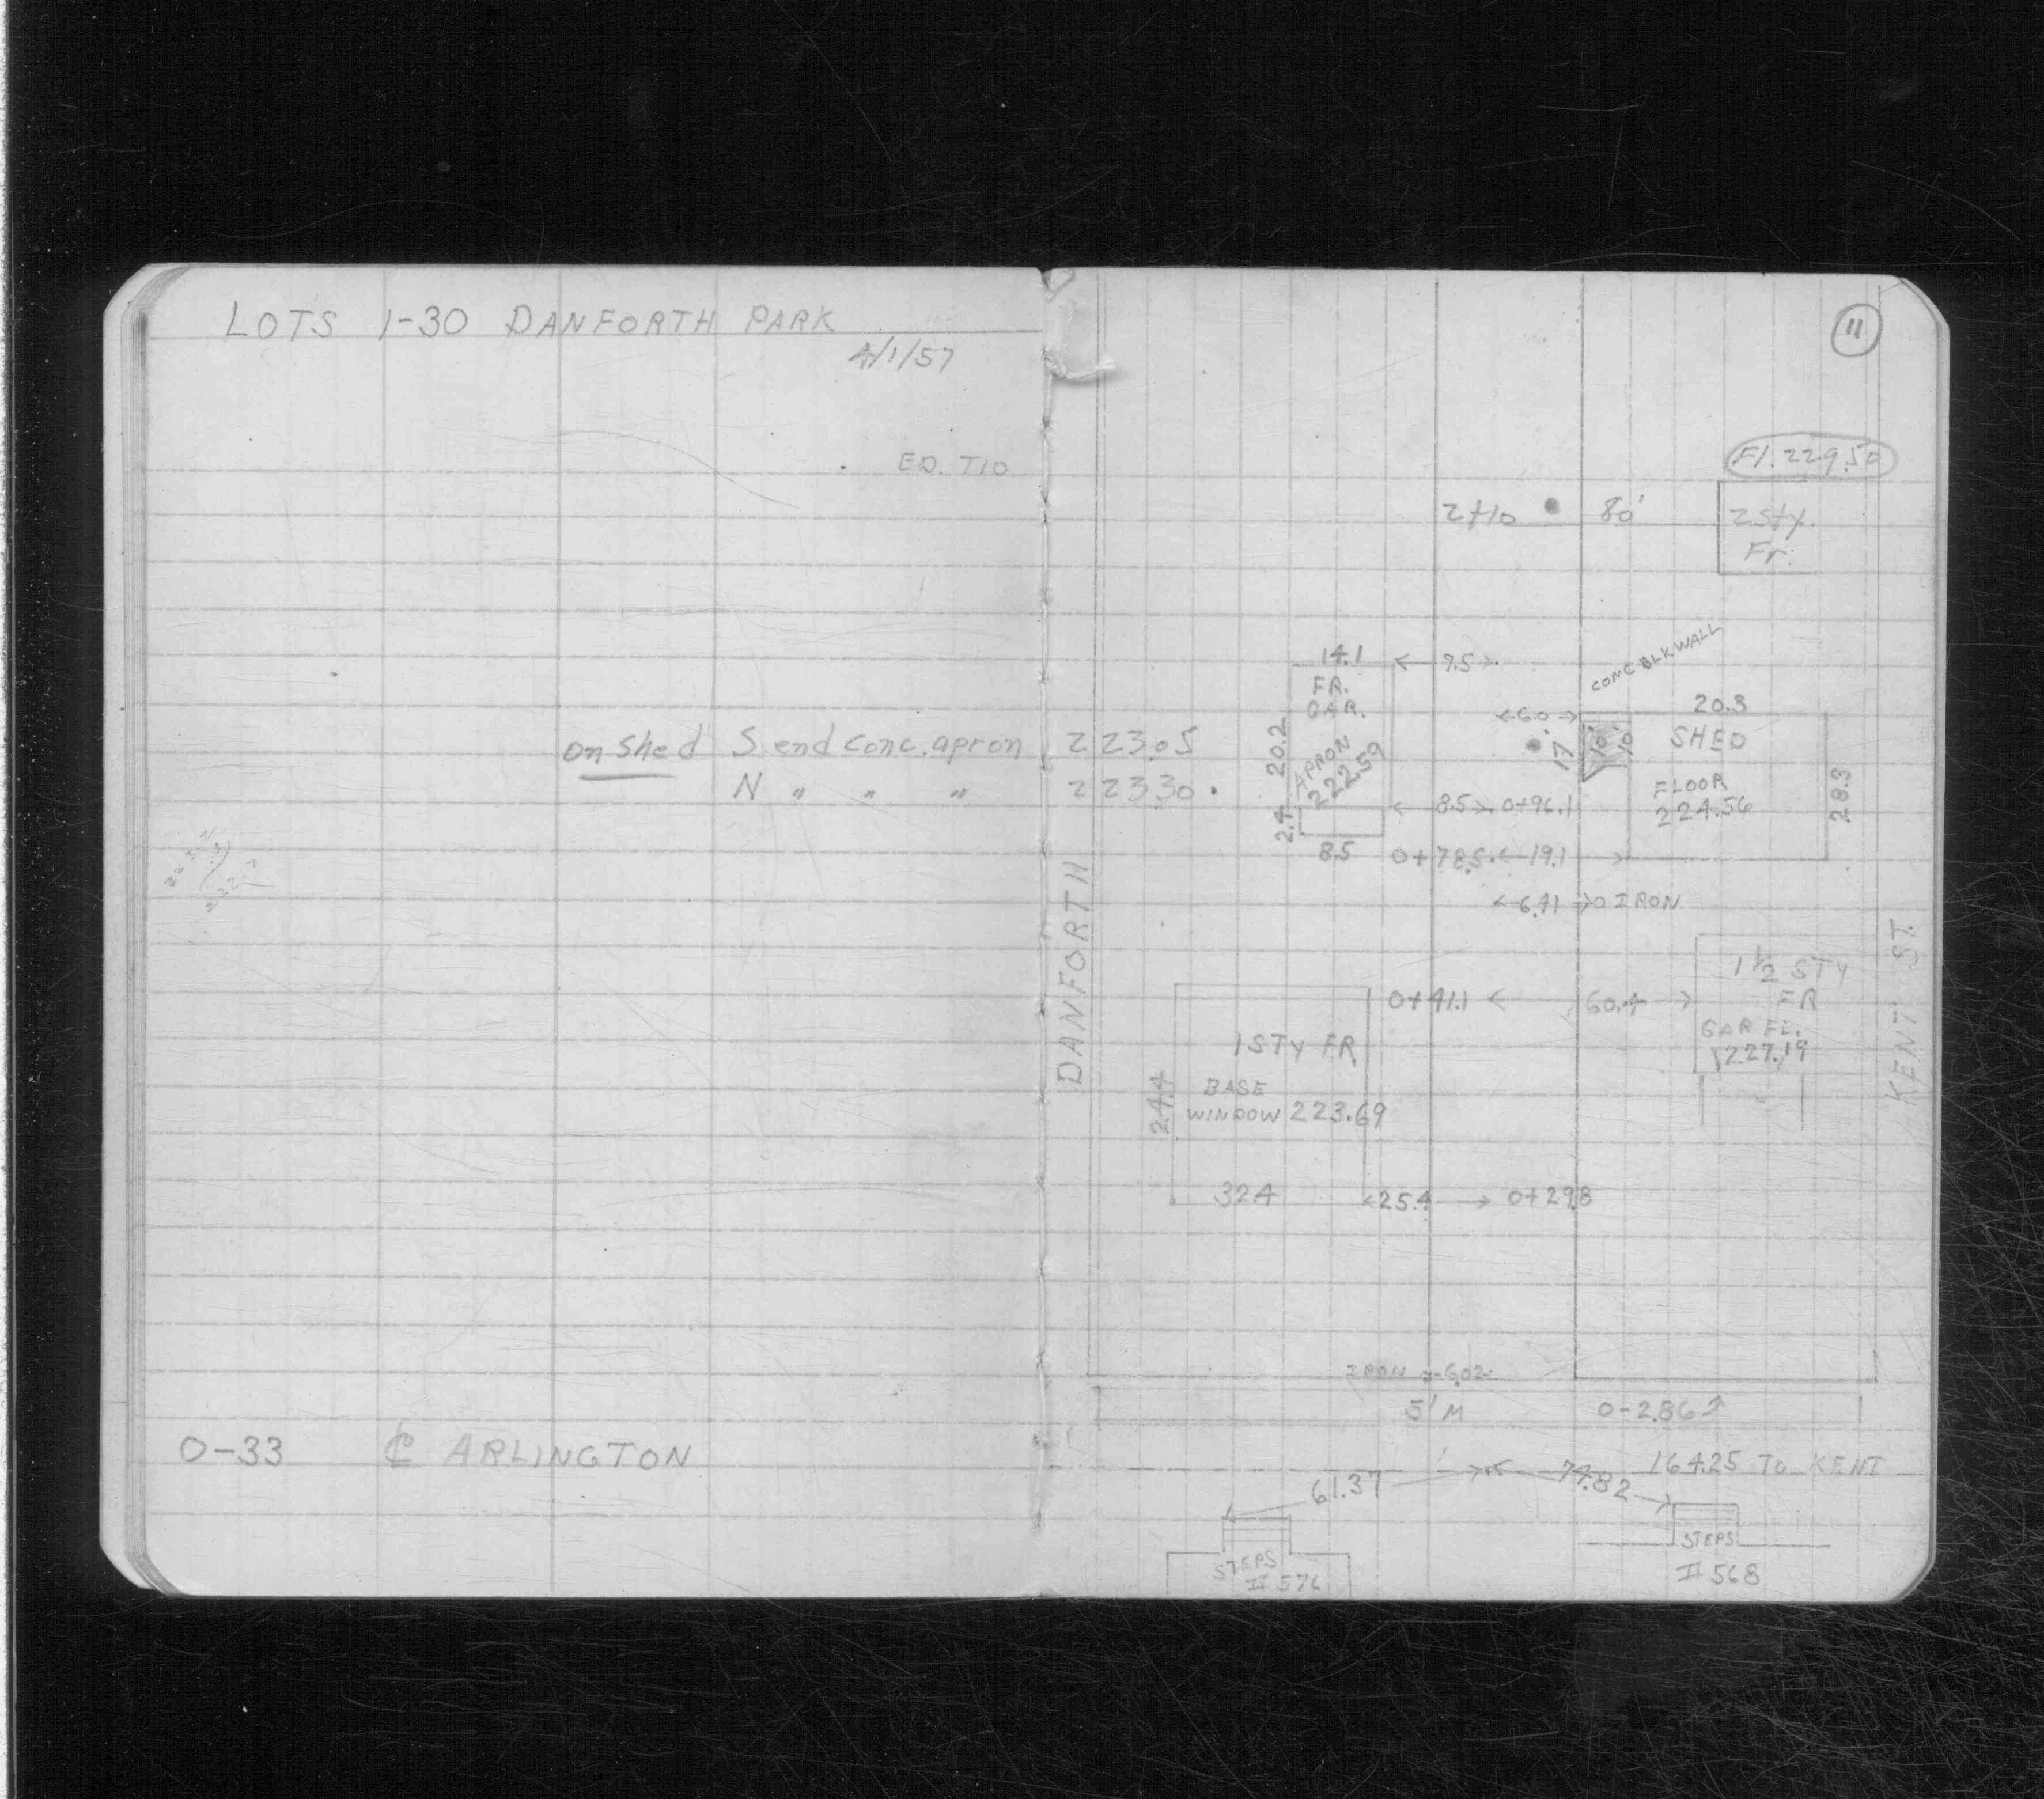 LOTS 1-30 DANFORTH PARK
4/1/57
ED. TIO
on shed S. end conc. apron 223.05
N " " " 223.30
0-33 ℄ ARLINGTON
11
Fl. 229.50
2+10 80'
2 sty.
Fr.
CONC BLK WALL
14.1
9.5
FR.
GAR.
20.2
APRON
222.59
2.4
8.5
6.0
17
10
10
20.3
SHED
FLOOR
224.56
28.3
8.5 0+96.1
0+78.5 19.1
6.41 O IRON
DANFORTH
KENT ST.
1 1/2 STY
FR
GAR FL.
227.19
0+41.1 60.4
1 STY FR
BASE
WINDOW 223.69
24.4
32.4
25.4 0+29.8
IRON 6.02
51 M
0-2.86
164.25 TO KENT
61.37
74.82
STEPS
# 576
STEPS
# 568